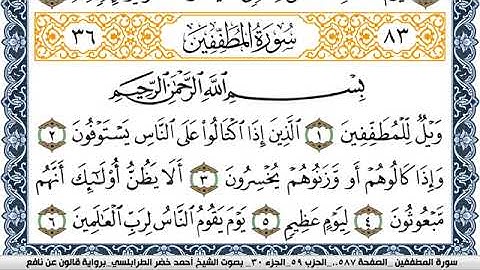 ٨٣ سُورَةُ المُطَفِّفِينَ ٣٦
بِسْمِ اللَّهِ الرَّحْمَٰنِ الرَّحِيمِ
وَيْلٌ لِّلْمُطَفِّفِينَ ١ الَّذِينَ إِذَا اكْتَالُوا عَلَى النَّاسِ يَسْتَوْفُونَ ٢
وَإِذَا كَالُوهُمْ أَو وَّزَنُوهُمْ يُخْسِرُونَ ٣ أَلَا يَظُنُّ أُوْلَٰٓئِكَ أَنَّهُم
مَّبْعُوثُونَ ٤ لِيَوْمٍ عَظِيمٍ ٥ يَوْمَ يَقُومُ النَّاسُ لِرَبِّ الْعَالَمِينَ ٦
سورة المطففين _الصفحة ٥٨٧،، _الحزب ٥٩ _الجزء ٣٠ _ بصوت الشيخ أحمد خضر الطرابلسي _برواية قالون عن نافع